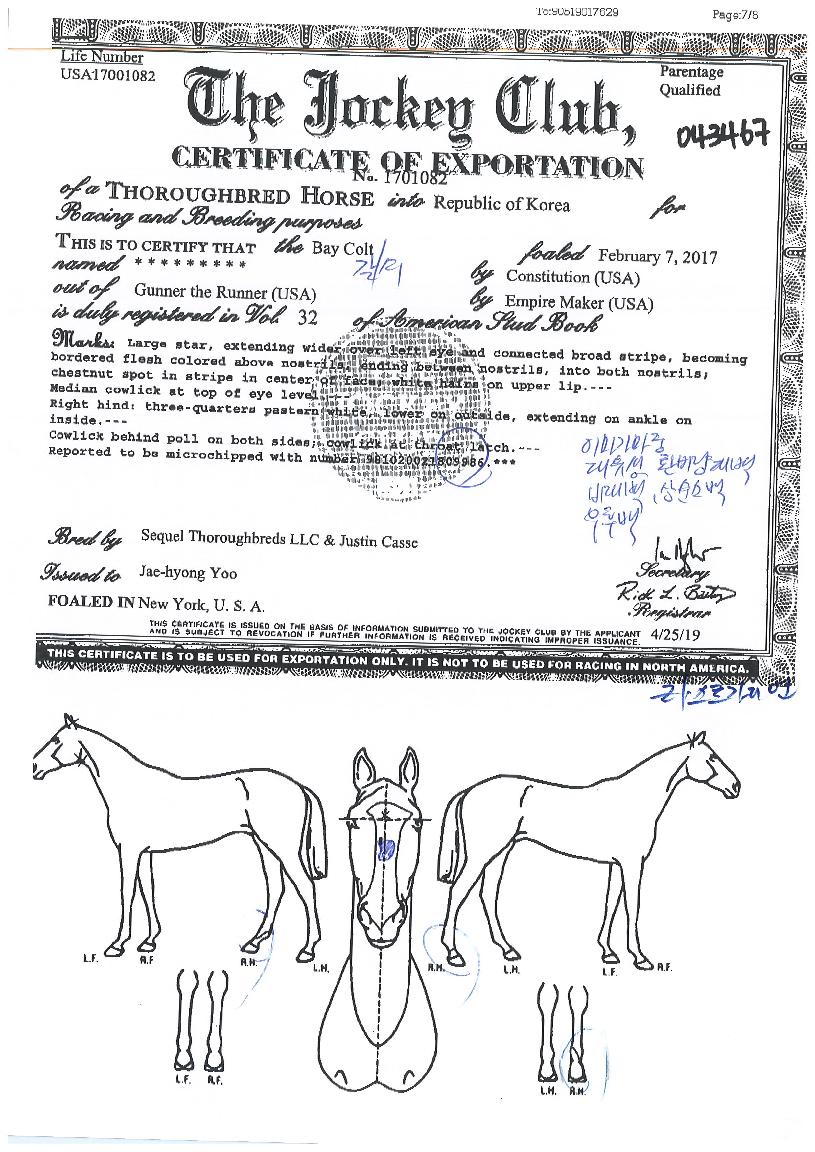 To:90519017629 Page:7/8
Life Number
USA17001082
Parentage
Qualified
The Jockey Club,
043467
CERTIFICATE OF EXPORTATION
No. 1701082
of a THOROUGHBRED HORSE into Republic of Korea for
Racing and Breeding purposes
THIS IS TO CERTIFY THAT the Bay Colt foaled February 7, 2017
named * * * * * * * * * by Constitution (USA)
out of Gunner the Runner (USA) by Empire Maker (USA)
is duly registered in Vol. 32 of American Stud Book
Marks: Large star, extending wider over left eye and connected broad stripe, becoming
bordered flesh colored above nostrils, ending between nostrils, into both nostrils;
chestnut spot in stripe in center of face; white hairs on upper lip.----
Median cowlick at top of eye level.---
Right hind: three-quarters pastern white, lower on outside, extending on ankle on
inside.---
Cowlick behind poll on both sides; cowlick at throat latch.---
Reported to be microchipped with number 981020021809986.***
이마가마중
대유성
Bred by Sequel Thoroughbreds LLC & Justin Casse
Issued to Jae-hyong Yoo
Secretary
FOALED IN New York, U. S. A.
Registrar
THIS CERTIFICATE IS ISSUED ON THE BASIS OF INFORMATION SUBMITTED TO THE JOCKEY CLUB BY THE APPLICANT
AND IS SUBJECT TO REVOCATION IF FURTHER INFORMATION IS RECEIVED INDICATING IMPROPER ISSUANCE. 4/25/19
THIS CERTIFICATE IS TO BE USED FOR EXPORTATION ONLY. IT IS NOT TO BE USED FOR RACING IN NORTH AMERICA.
L.F. R.F. R.H. L.H. R.H. L.H. L.F. R.F.
L.F. R.F. L.H. R.H.